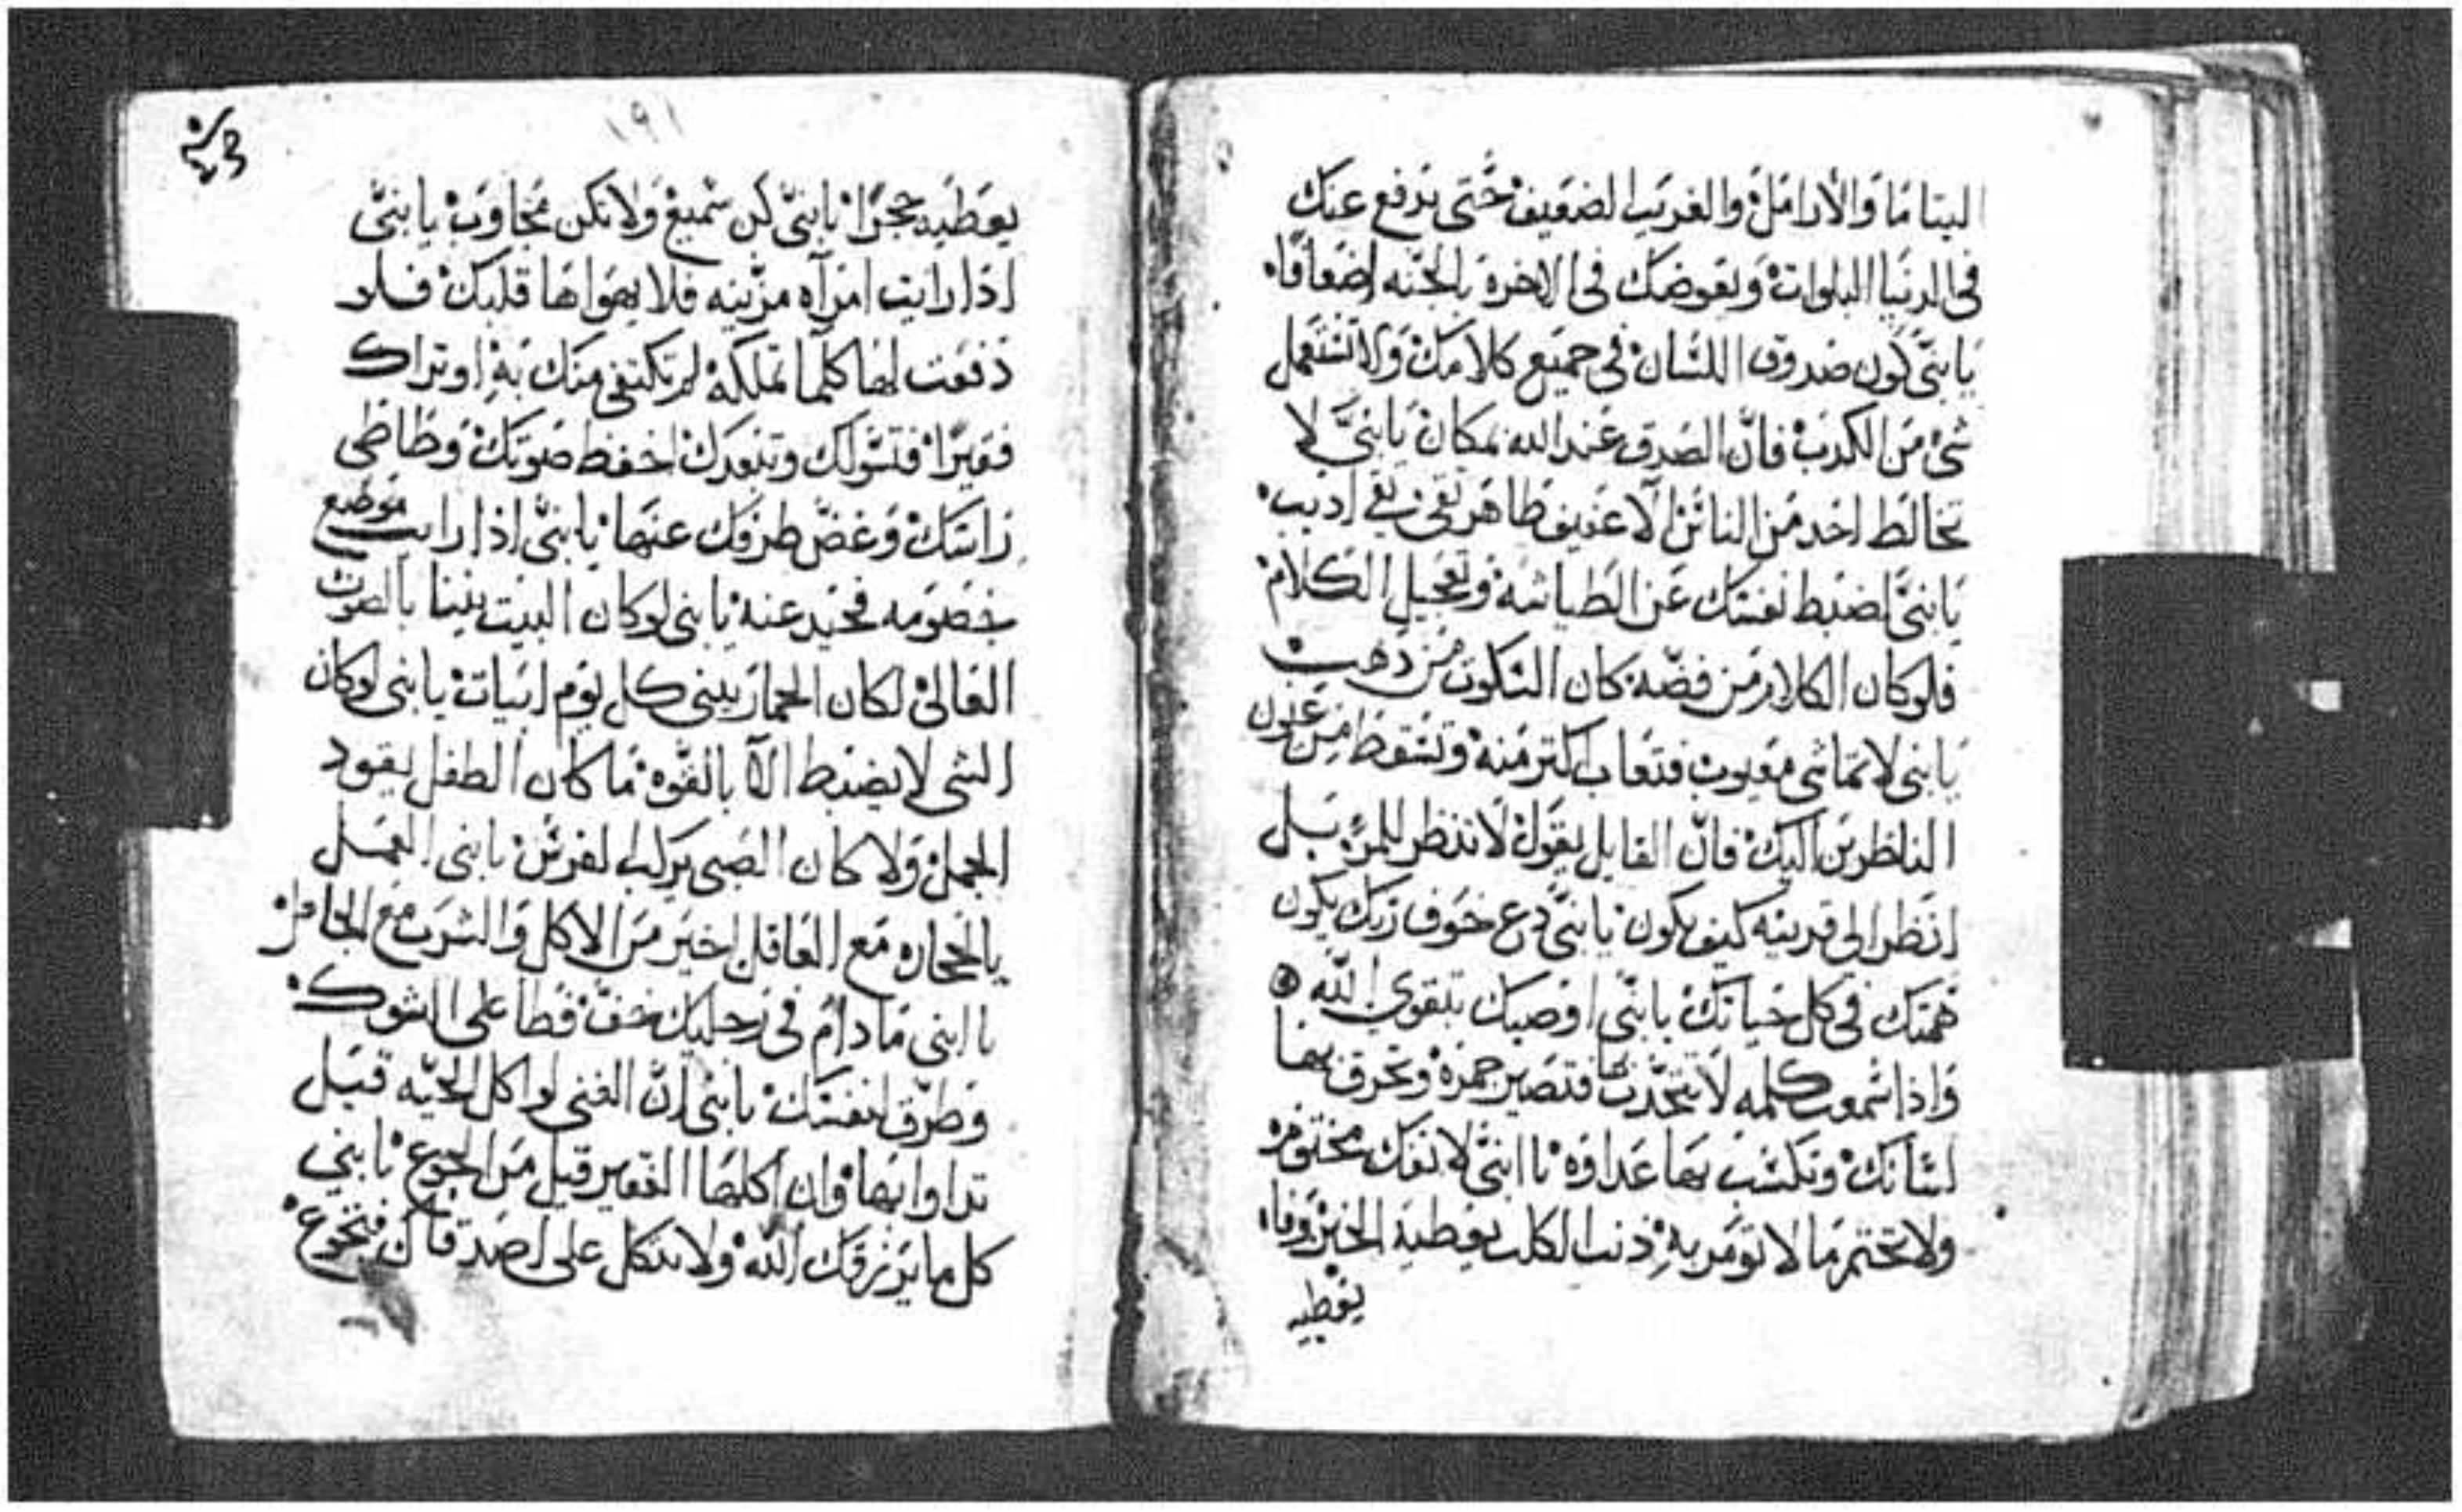 اليتاما والارامل والغريب الضعيف حتى يدفع عنك
فى الدنيا البلوات ويعوضك فى الاخرة بالجنه اضعافا
يا بنى كون صدوق اللسان فى جميع كلامك ولا تستعمل
شى من الكدب فان الصدق عند الله بمكان يا بنى لا
تخالط احد من الناس الا عفيف طاهر تقى نقى اديب
يا بنى اضبط نفسك عن الطياشه وتعجيل الكلام
فلو كان الكلام من فضه كان السكوت من دهب
يا بنى لا تماشى معيوب فتعاب اكتر منه وتسقط من عيون
الناظرين اليك فان القايل يقول لا تنظر للمرء بل
انظر الى قرينه كيف يكون يا بنى دع خوف ربك يكون
همتك فى كل حياتك يا بنى اوصيك بتقوى الله
واذا سمعت كلمه لا تتحدت بها فتصير جمره وتحرق بها
لسانك وتكسب بها عداوه يا ابنى لا تفك مختوم
ولا تختم ما لا تومر به ذنب الكلب يعطيه الخبز وفاه
يعطيه
١٩١
يعطيه حجرا يا بنى كن سميع ولا تكن مجاوب يا بنى
اذا رايت امرآه مزينه فلا يهواها قلبك فلو
دفعت لها كلما تملكه لم تكتفى منك به او تراك
فقيرا فتسولك وتبعدك اخفظ صوتك وطاطى
راسك وغض طرفك عنها يا بنى اذا رايت موضع
خصومه فحيد عنه يا بنى لو كان البيت يبنا بالصوت
العالى لكان الحمار يبنى كل يوم ابيات يا بنى لو كان
الشى لا يضبط الا بالقوه ما كان الطفل يقود
الجمل ولا كان الصبى يركب الفرس يا بنى العمل
بالحجاره مع العاقل اخير من الاكل والشرب مع الجاهل
يا ابنى ما دام فى رجليك خف فطا على الشوك
وطرق لنفسك يا بنى ان الغنى لو اكل الحيه قبل
تداوا بها وان اكلها الفقير قبل من الجوع يا بنى
كل ما يرزقك الله ولا تتكل على اصدقاك فتجوع